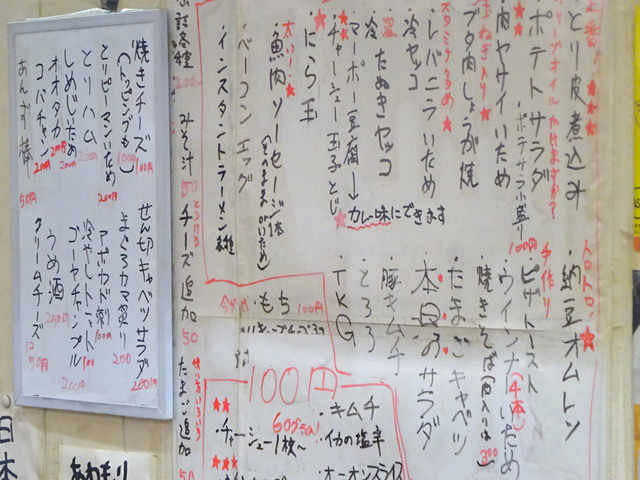 焼きチーズ 100円
(トッピングも) 100円
とりピーマンいため 200円
とりハム 200円
しめじいため 200円
オオタカ 200円
コバチャン 200円
あんず棒 50円
せん切キャベツサラダ 200円
まぐろカマ炙り 200
アボカド刺
冷やしトマト 100
ゴーヤチャンプル 200円
うめ酒 250円
クリームチーズ 50円
とり皮煮込み
オリーブオイルかけますか?
・ポテトサラダ
・ポテサラ小盛り 100円
・肉ヤサイいため
玉ねぎ入り
・ブタ肉しょうが焼
スタミナタるめ
・レバニラいため
冷ヤッコ
冷たぬきヤッコ
・マーボー豆腐→カレー味にできます
・チャーシュー玉子とじ
・にら玉
太い!
・魚肉ソーセージ1本
(そのままorいため)
・ベーコンエッグ
・インスタントラーメン各種
缶詰各種 200
みそ汁 50
チーズ追加 50
たまご追加 50
トロトロ!
納豆オムレツ
手作り
・ピザトースト
・ウインナー(4本)いため
・焼きそば(肉入りは300)
・たまごキャベツ
・本日のサラダ
・豚キムチ
・とろろ
・TKG
・もち 100円
100円
・キムチ
・イカの塩辛
・オニオンスライス
60グラム!
・チャーシュー1枚〜
あわもり
日本